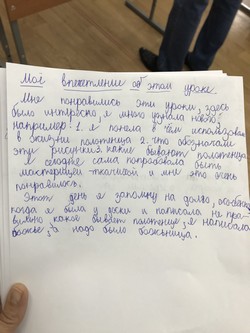 Моё впечетление об этом уроке
Мне понравились эти уроки, здесь
было интересно, я много узнала нового
например: 1. я понела в чём использовал
в жизни полотенца 2. что обозначали
эти рисунки 3. какие бывают полотенца
я сегодня сама попробовала быть
мастерицей ткачихой и мне это очень
понравилось.
Этот день я запомню на долго, особенно
когда я была у доски и написала не пра-
вильно какое бывает полотенце, я написала
божье, а надо было божница.